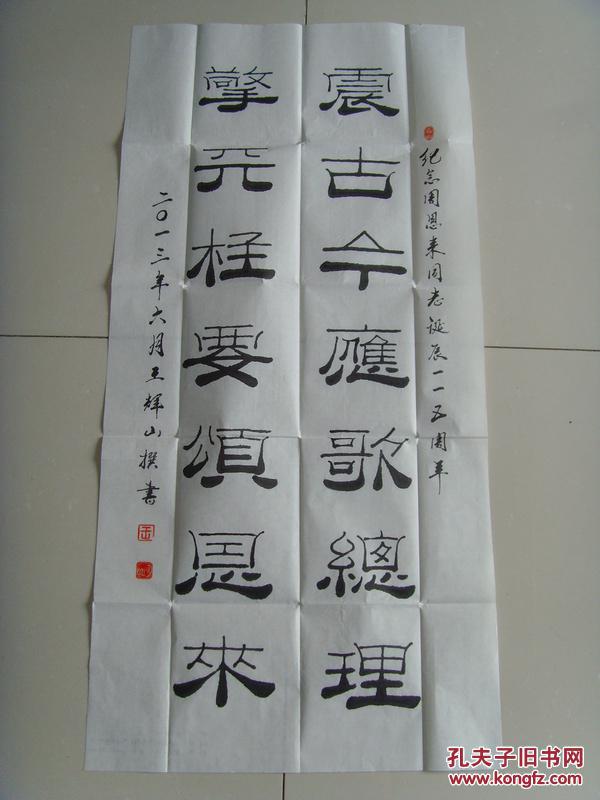 纪念周恩来同志诞辰一一五周年
震古今應歌總理
擎天柱要頌恩來
二〇一三年六月王輝山撰書
孔夫子旧书网
www.kongfz.com